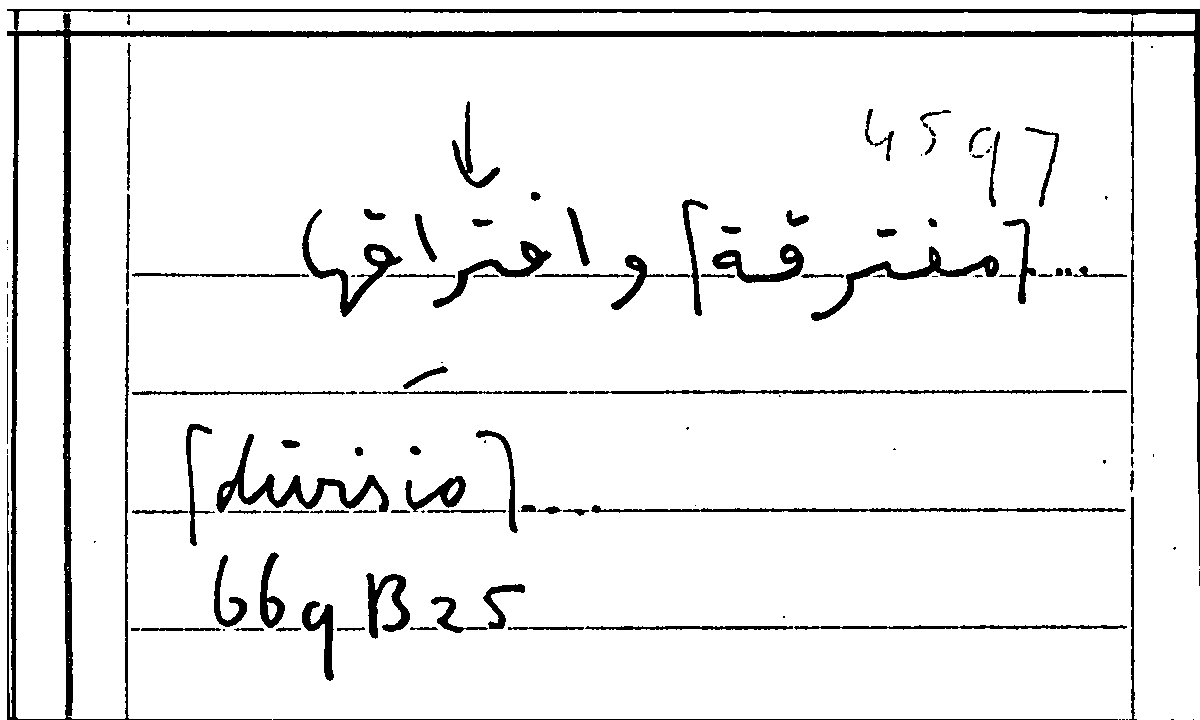 4597
...[مفترقة] وافتراقها
[divisio]....
669B25